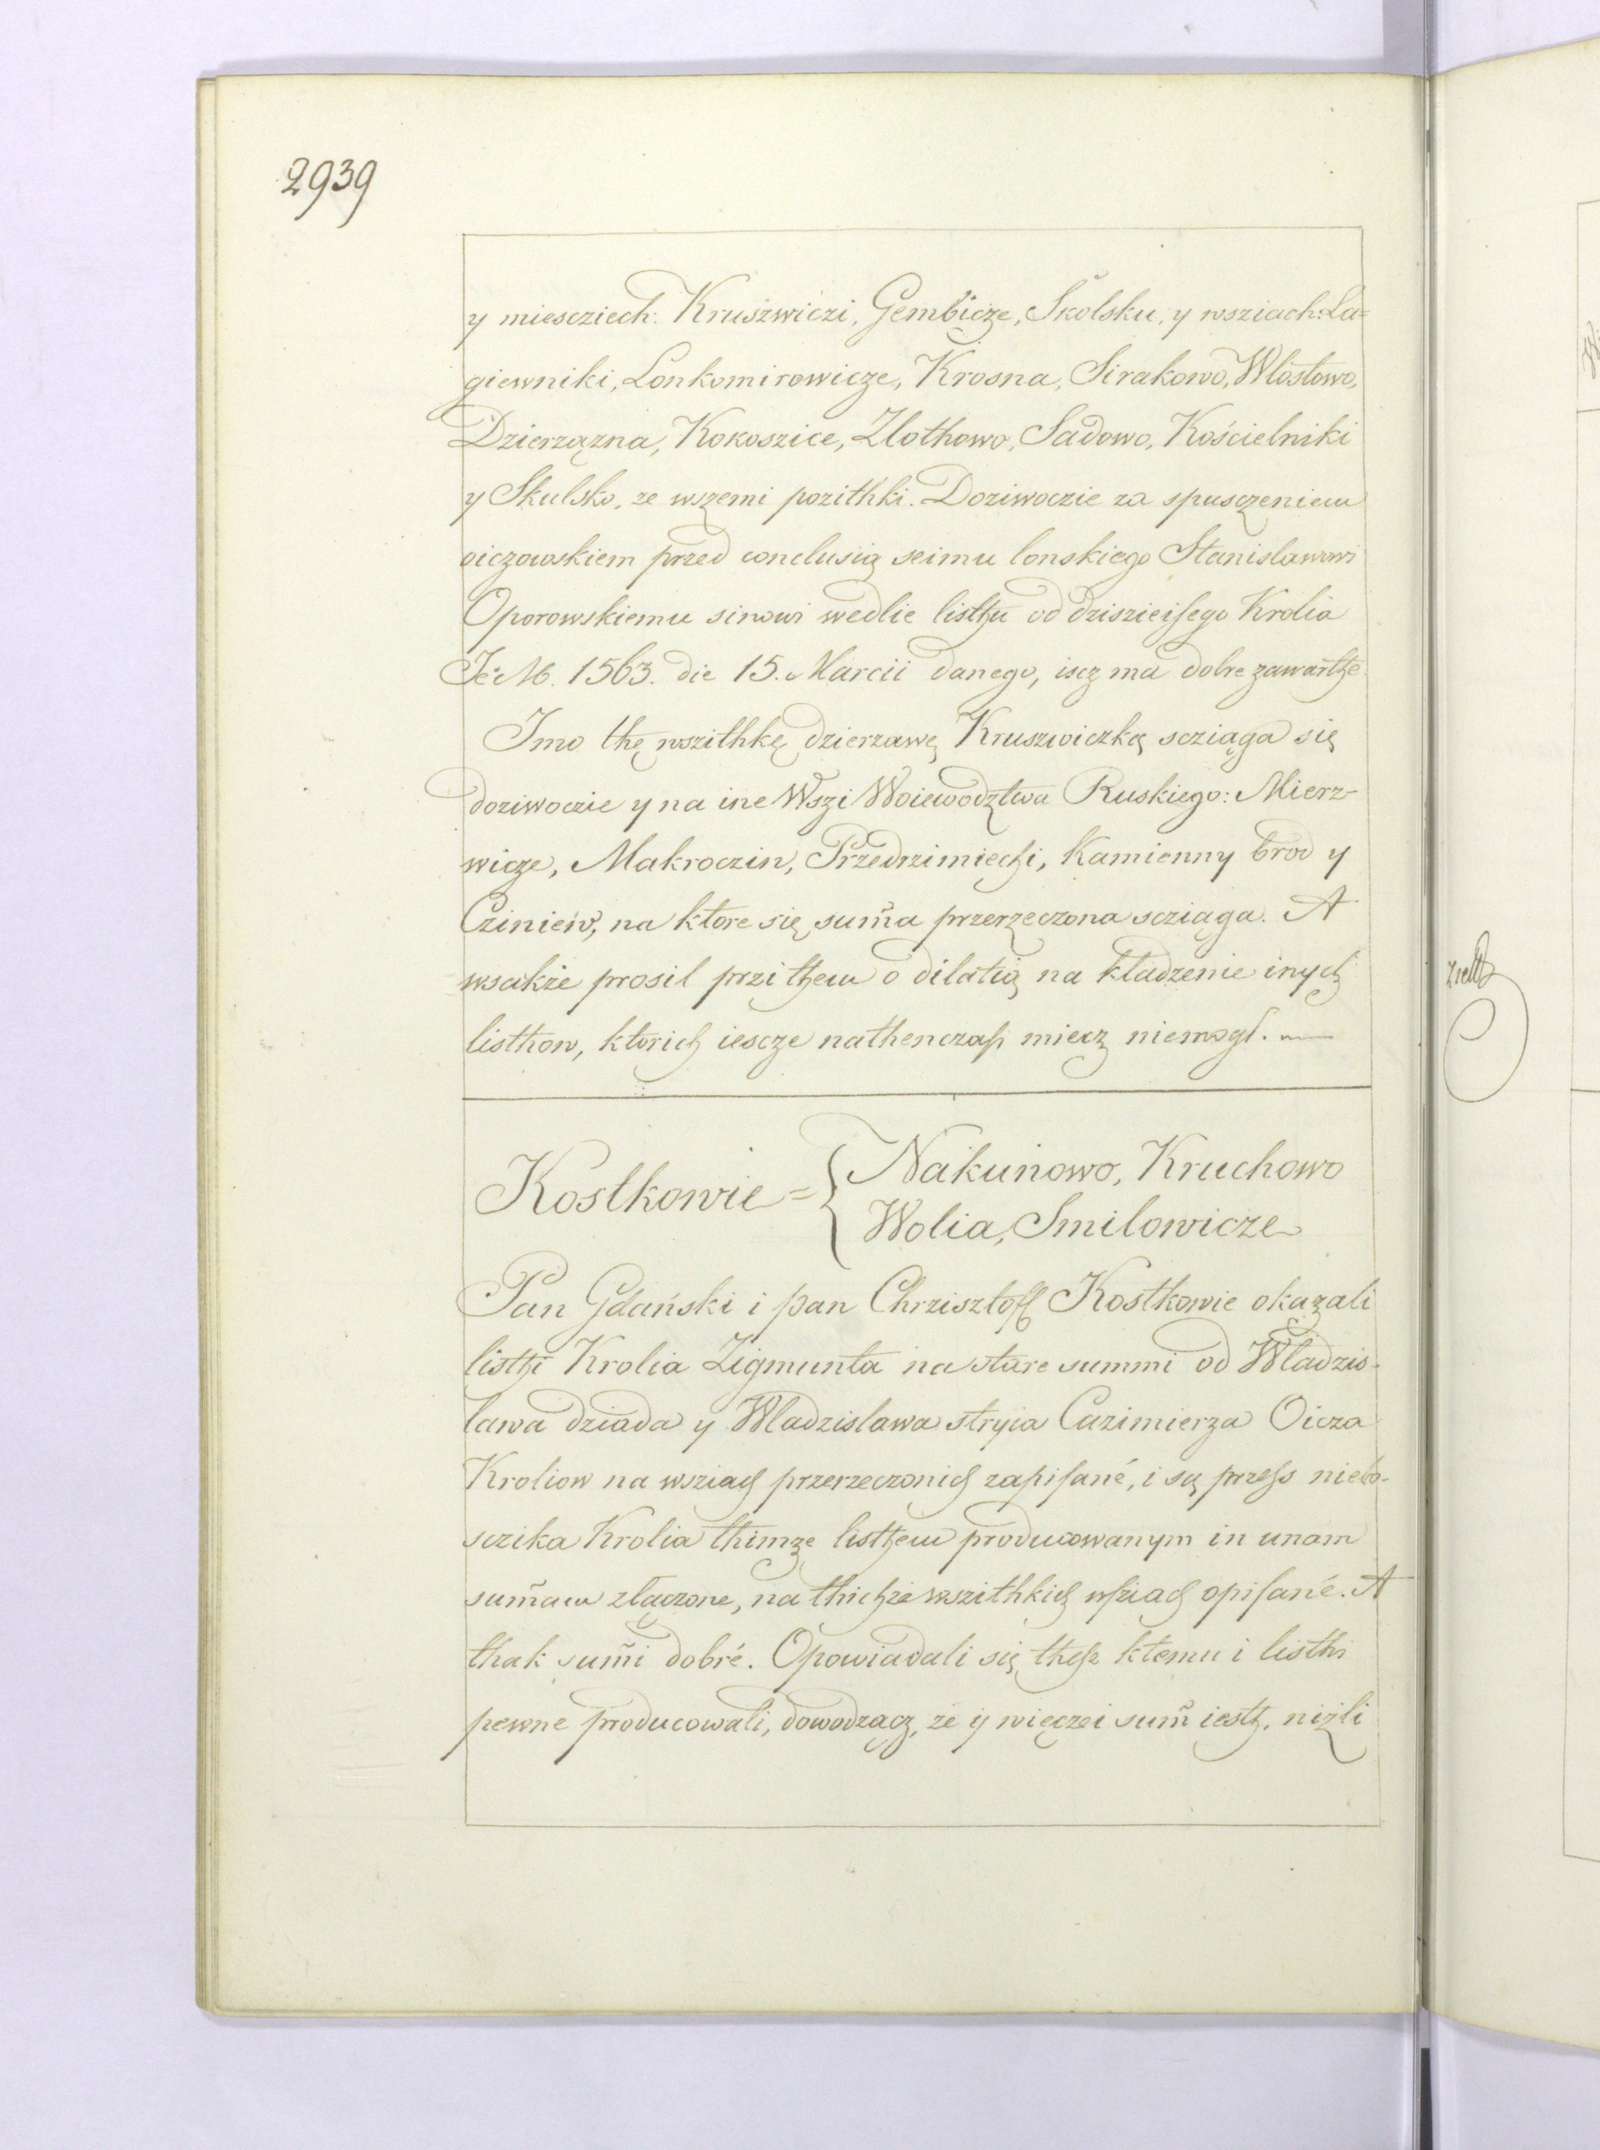 2939
y miescziech: Kruszwiczi, Gembicze, Skolsku, y wsziach: La=
giewniki, Lonkomirowicze, Krosna, Sirakowo, Wlostowo,
Dzierzązna, Kokoszice, Zlothowo, Sadowo, Kościelniki
y Skulsko, ze wszemi pozithki. Doziwoczie za spusczeniem
oiczowskiem przed conclusią seimu lonskiego Stanislawowi
Oporowskiemu sinowi wedlie listhu od dziszieiszego Krolia
Je: M. 1563. die 15. Marcii danego, iscz ma dobre zawarthe.
Imo thę wszithkę dzierzawę Kruszwiczką scziąga się
doziwoczie y na ine Wszi Woiewodztwa Ruskiego: Mierz-
wicze, Makroczin, Przedrzimiechi, Kamienny brod y
Cziniew, na ktore się sum̃a przerzeczona scziąga. A
wsakże prosil przi them o dilatią na kładzenie inych
listhow, ktorich iescze nathenczass miecz niemogł.
Kostkowie = { Nakunowo, Kruchowo
Wolia, Smilowicze
Pan Gdański i pan Chrzisztoff Kostkowie okazali
listhi Krolia Zigmunta na stare summi od Wladzis-
lawa dziada y Wladzislawa stryia Cazimierza Oicza
Kroliow na wsziach przerzeczonich zapisané, i są przess niebo-
sczika Krolia thimze listhem producowanym in unam
sum̃am złączone, na thichże wszithkich wsziach opisané. A
thak sum̃i dobré. Opowiadali się thesz ktemu i listhi
pewne producowali, dowodzącz, ze ij więczei sum̃ iesth, niżli